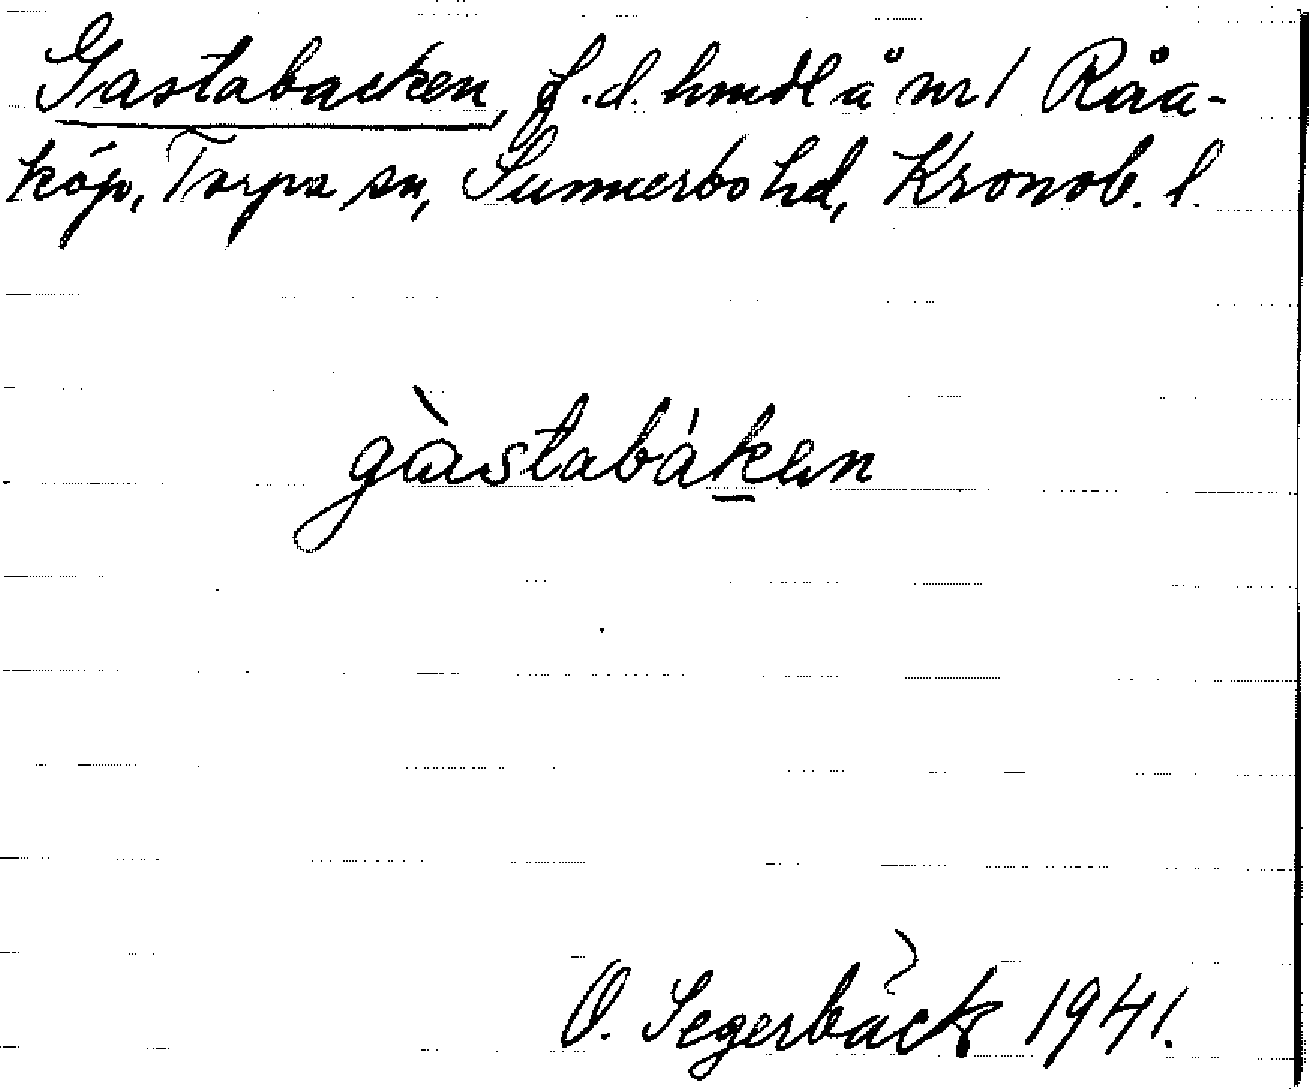 Gastabacken, f.d. hmdl å nr 1 Råa-
köp, Torpa sn, Sunnerbo hd, Kronob. l.
gàstabáken
O. Segerbäck 1941.